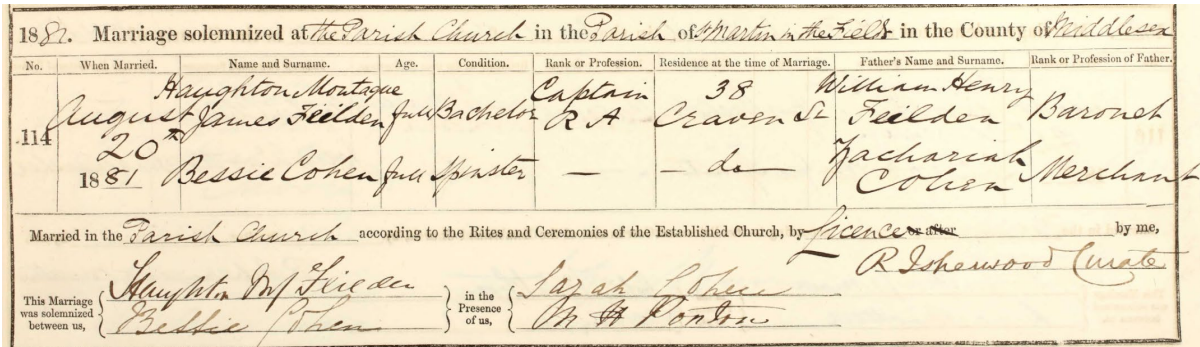 1881. Marriage solemnized at the Parish Church in the Parish of St Martin in the Fields in the County of Middlesex
No. When Married. Name and Surname. Age. Condition. Rank or Profession. Residence at the time of Marriage. Father's Name and Surname. Rank or Profession of Father.
114 August 20th 1881 Haughton Montague James Feilden full Bachelor Captain R A 38 Craven St William Henry Feilden Baronet
Bessie Cohen full Spinster — — do — Zachariah Cohen Merchant
Married in the Parish Church according to the Rites and Ceremonies of the Established Church, by Licence or after by me,
R Isherwood Curate
This Marriage was solemnized between us, Haughton M J Feilden Bessie Cohen in the Presence of us, Sarah Cohen M H Ponton